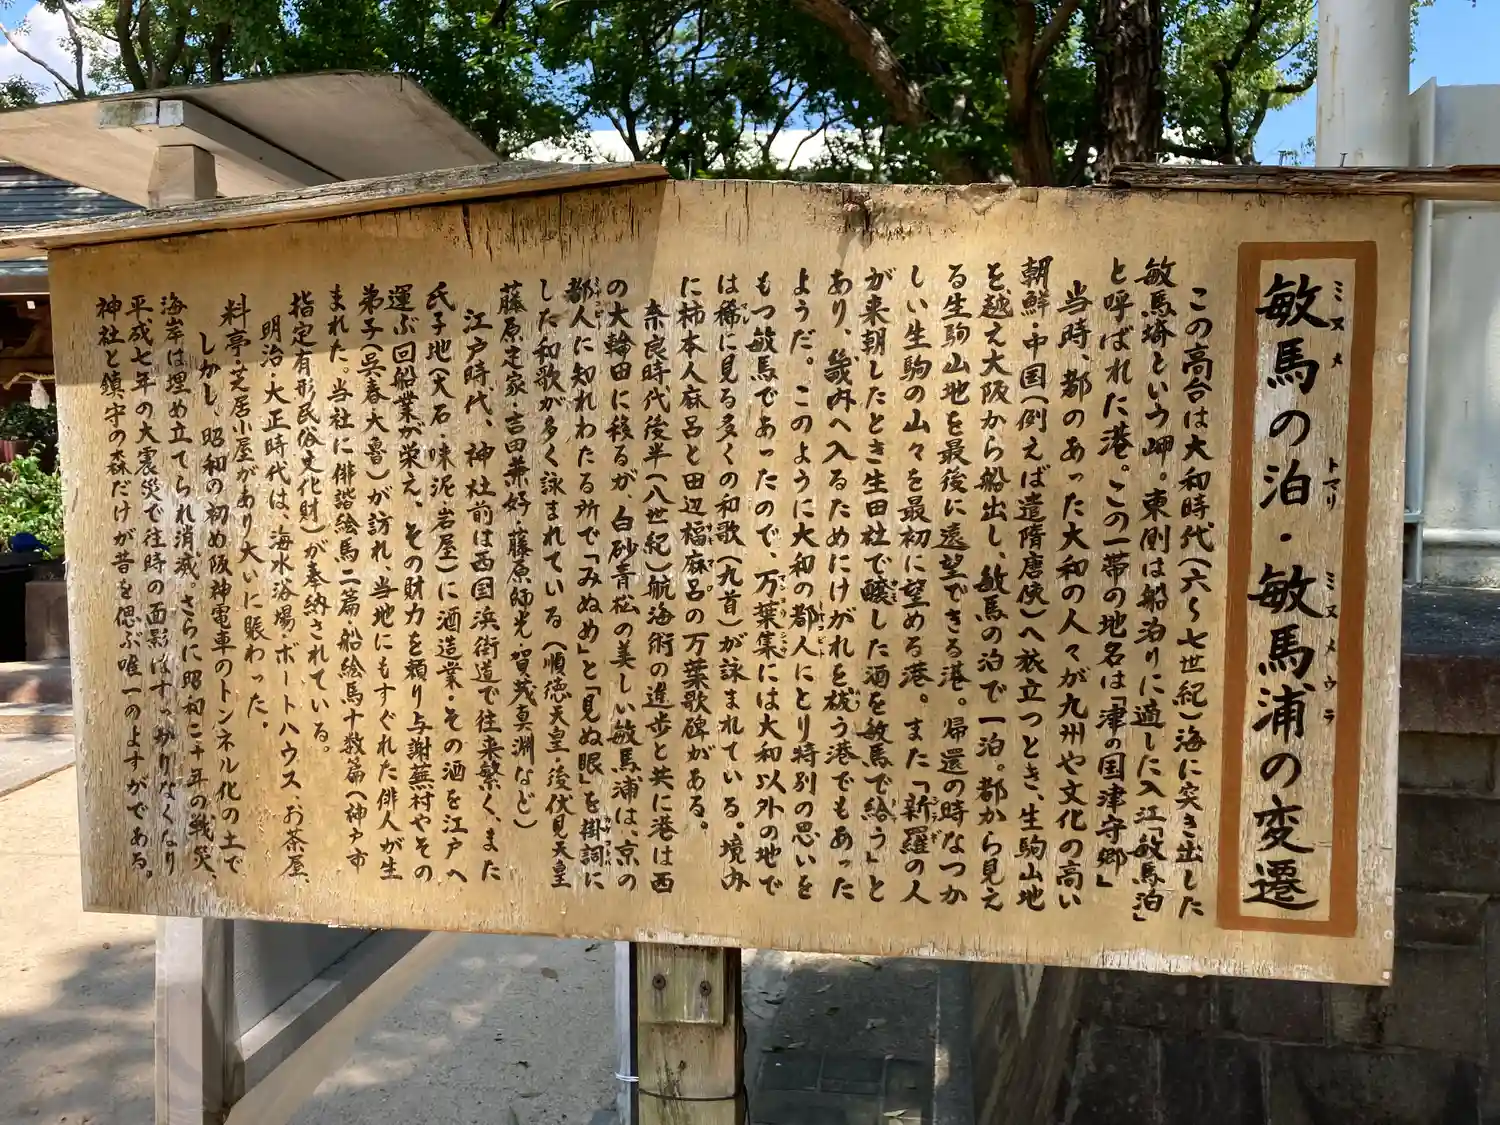 敏馬の泊・敏馬浦の変遷
ミヌメ トマリ ミヌメウラ
この高台は大和時代(六〜七世紀)海に突き出した
敏馬埼という岬。東側は船泊りに適した入江「敏馬泊」
と呼ばれた港。この一帯の地名は「津の国津守郷」
当時、都のあった大和の人々が九州や文化の高い
朝鮮・中国(例えば遣隋唐使)へ旅立つとき、生駒山地
を越え大阪から船出し、敏馬の泊で一泊。都から見え
る生駒山地を最後に遠望できる港。帰還の時なつか
しい生駒の山々を最初に望める港。また「新羅の人
が来朝したとき生田社で醸した酒を敏馬で給う」と
あり、畿内へ入るためにけがれを祓う港でもあった
ようだ。このように大和の都人にとり特別の思いを
もつ敏馬であったので、万葉集には大和以外の地で
は稀に見る多くの和歌(九首)が詠まれている。境内
に柿本人麻呂と田辺福麻呂の万葉歌碑がある。
奈良時代後半(八世紀)航海術の進歩と共に港は西
の大輪田に移るが、白砂青松の美しい敏馬浦は、京の
都人に知れわたる所で「みぬめ」と「見ぬ眼」を掛詞に
した和歌が多く詠まれている(順徳天皇・後伏見天皇
藤原定家・吉田兼好・藤原師光・賀茂真淵など)
江戸時代、神社前は西国浜街道で往来繁く、また
氏子地(大石・味泥・岩屋)に酒造業・その酒を江戸へ
運ぶ回船業が栄え、その財力を頼り与謝蕪村やその
弟子(呉春・大魯)が訪れ、当地にもすぐれた俳人が生
まれた。当社に俳諧絵馬二篇・船絵馬十数篇(神戸市
指定有形民俗文化財)が奉納されている。
明治・大正時代は、海水浴場・ボートハウス・お茶屋、
料亭・芝居小屋があり大いに賑わった。
しかし、昭和の初め阪神電車のトンネル化の土で
海岸は埋め立てられ消滅。さらに昭和二十年の戦災、
平成七年の大震災で往時の面影はすっかりなくなり
神社と鎮守の森だけが昔を偲ぶ唯一のよすがである。